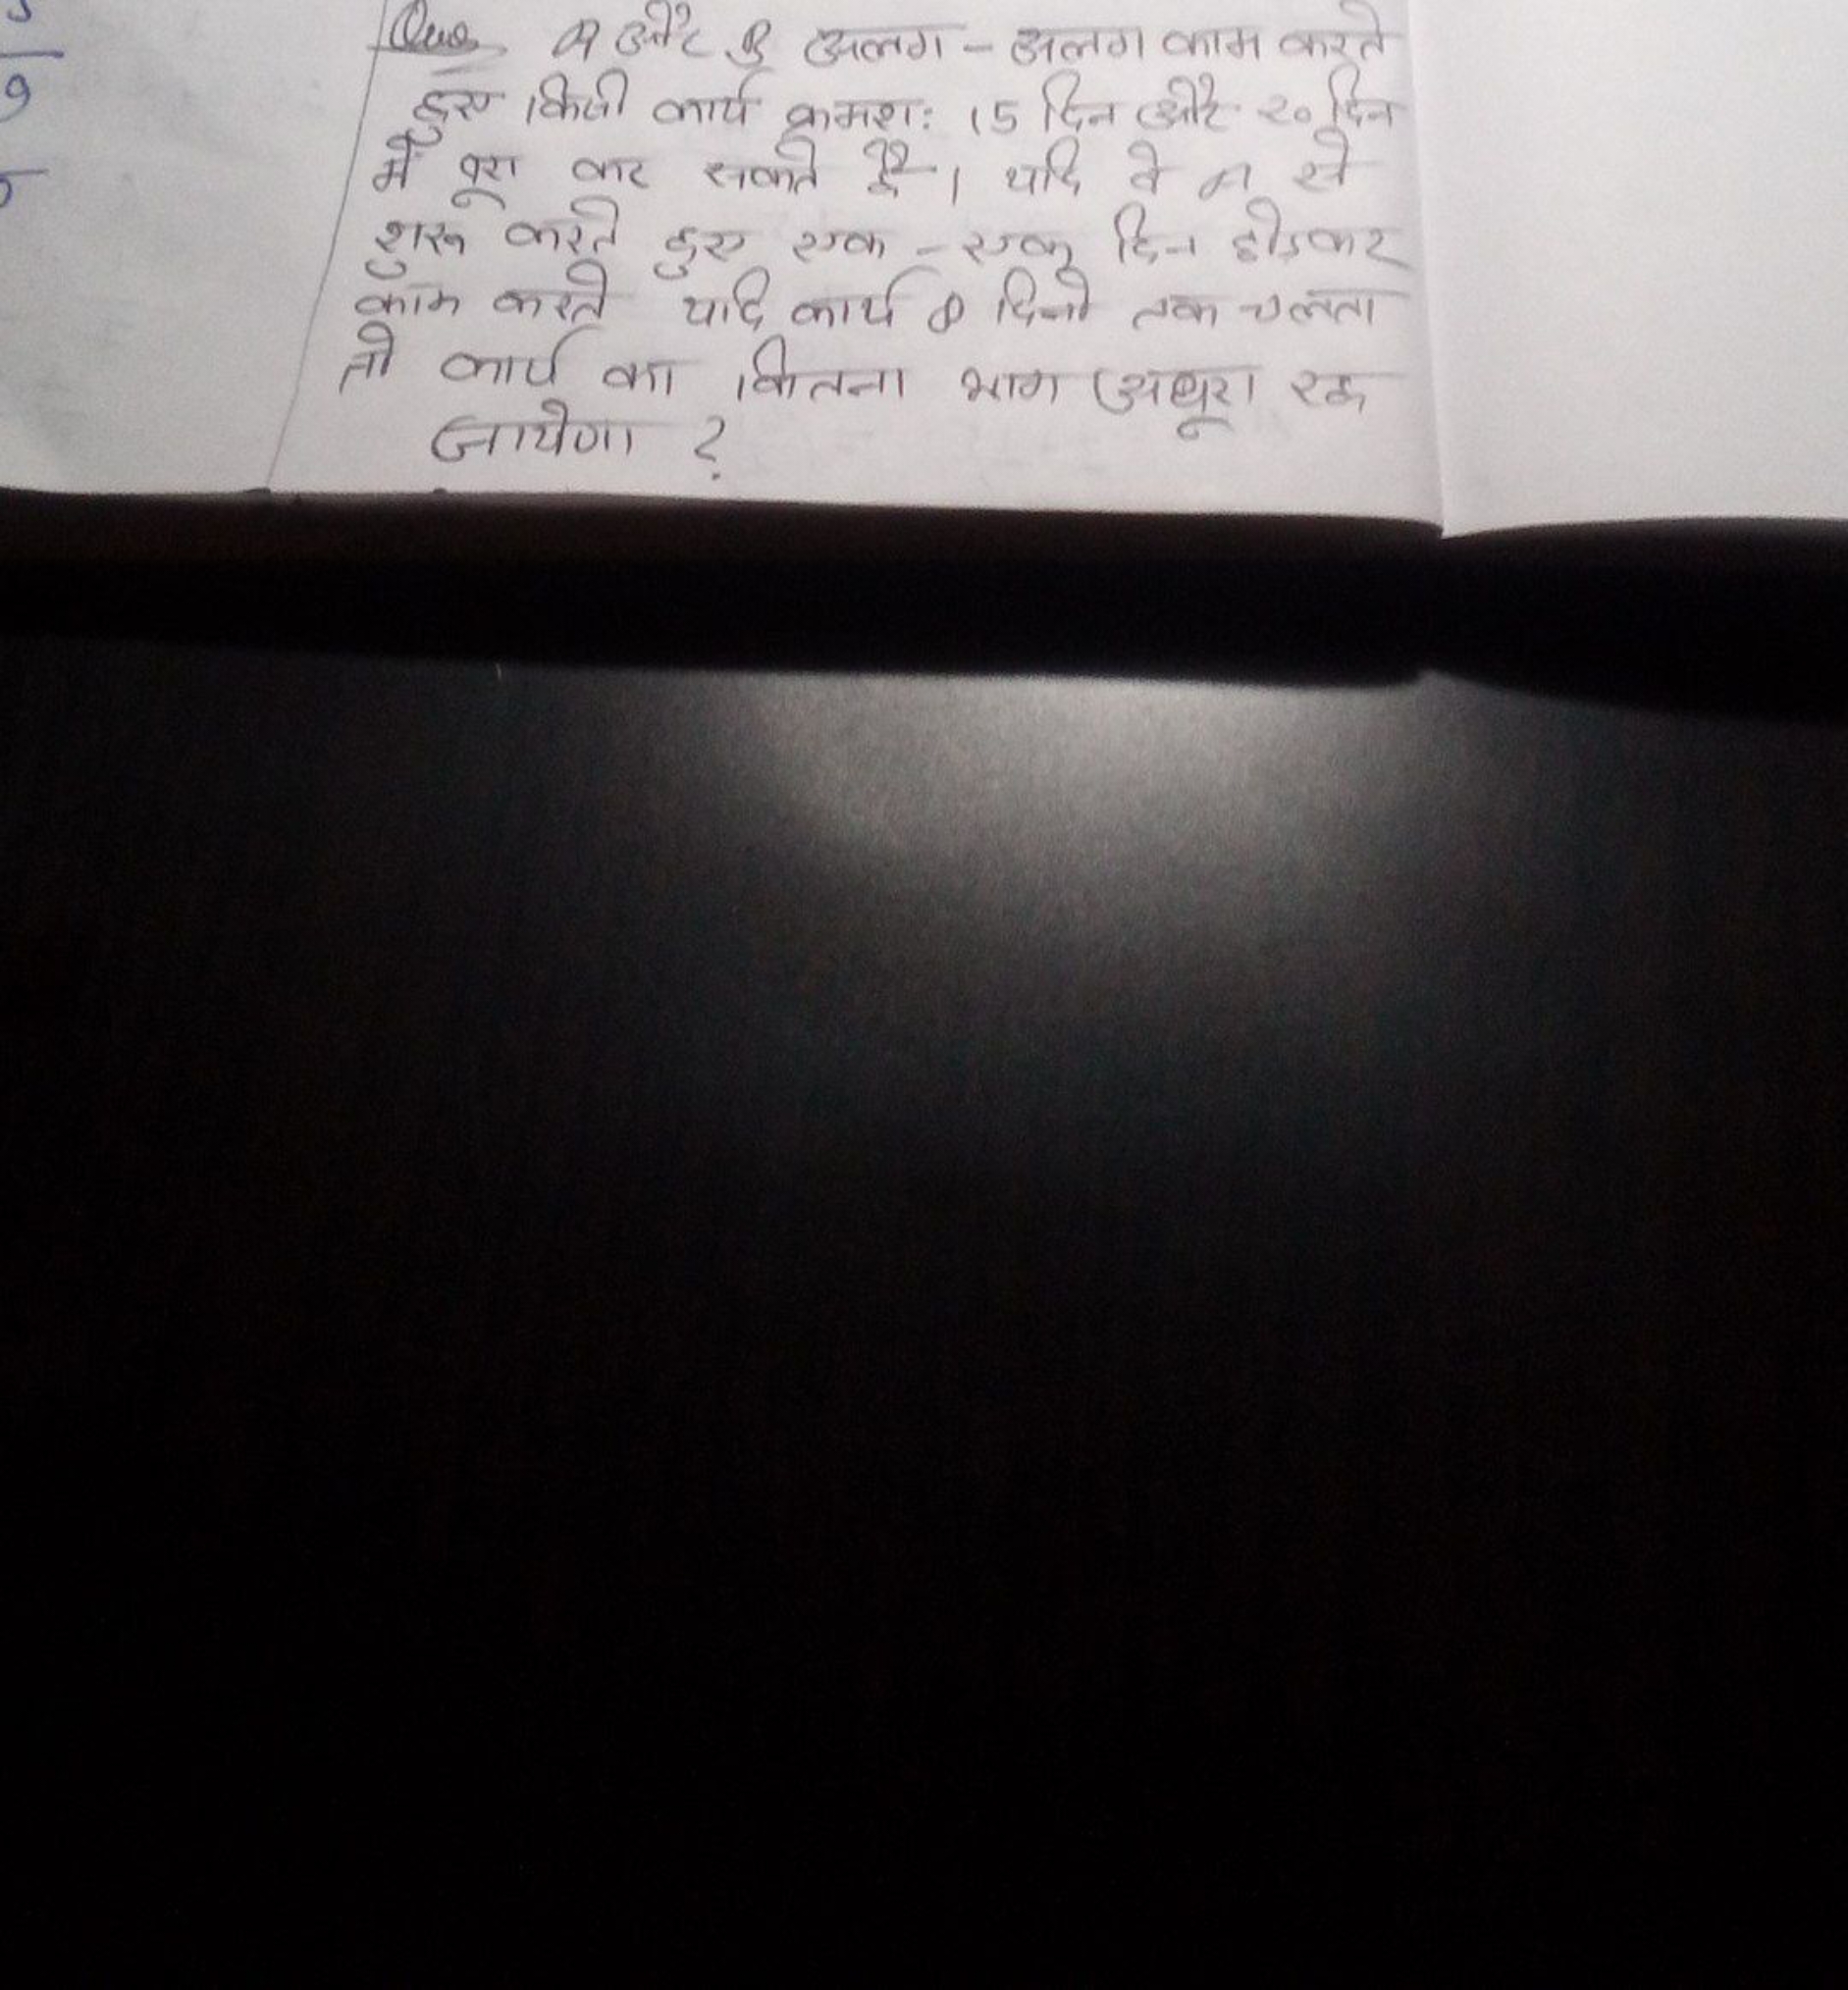 Que A और B अलग - अलग काम करते
हुए किसी कार्य क्रमश: 15 दिन और 20 दिन
में पूरा कर सकते है । यदि वे A से
शुरू करते हुए एक - एक दिन छोड़कर
काम करते यदि कार्य 8 दिनो तक चलता
तो कार्य का कितना भाग अधूरा रह
जायेगा ?
9